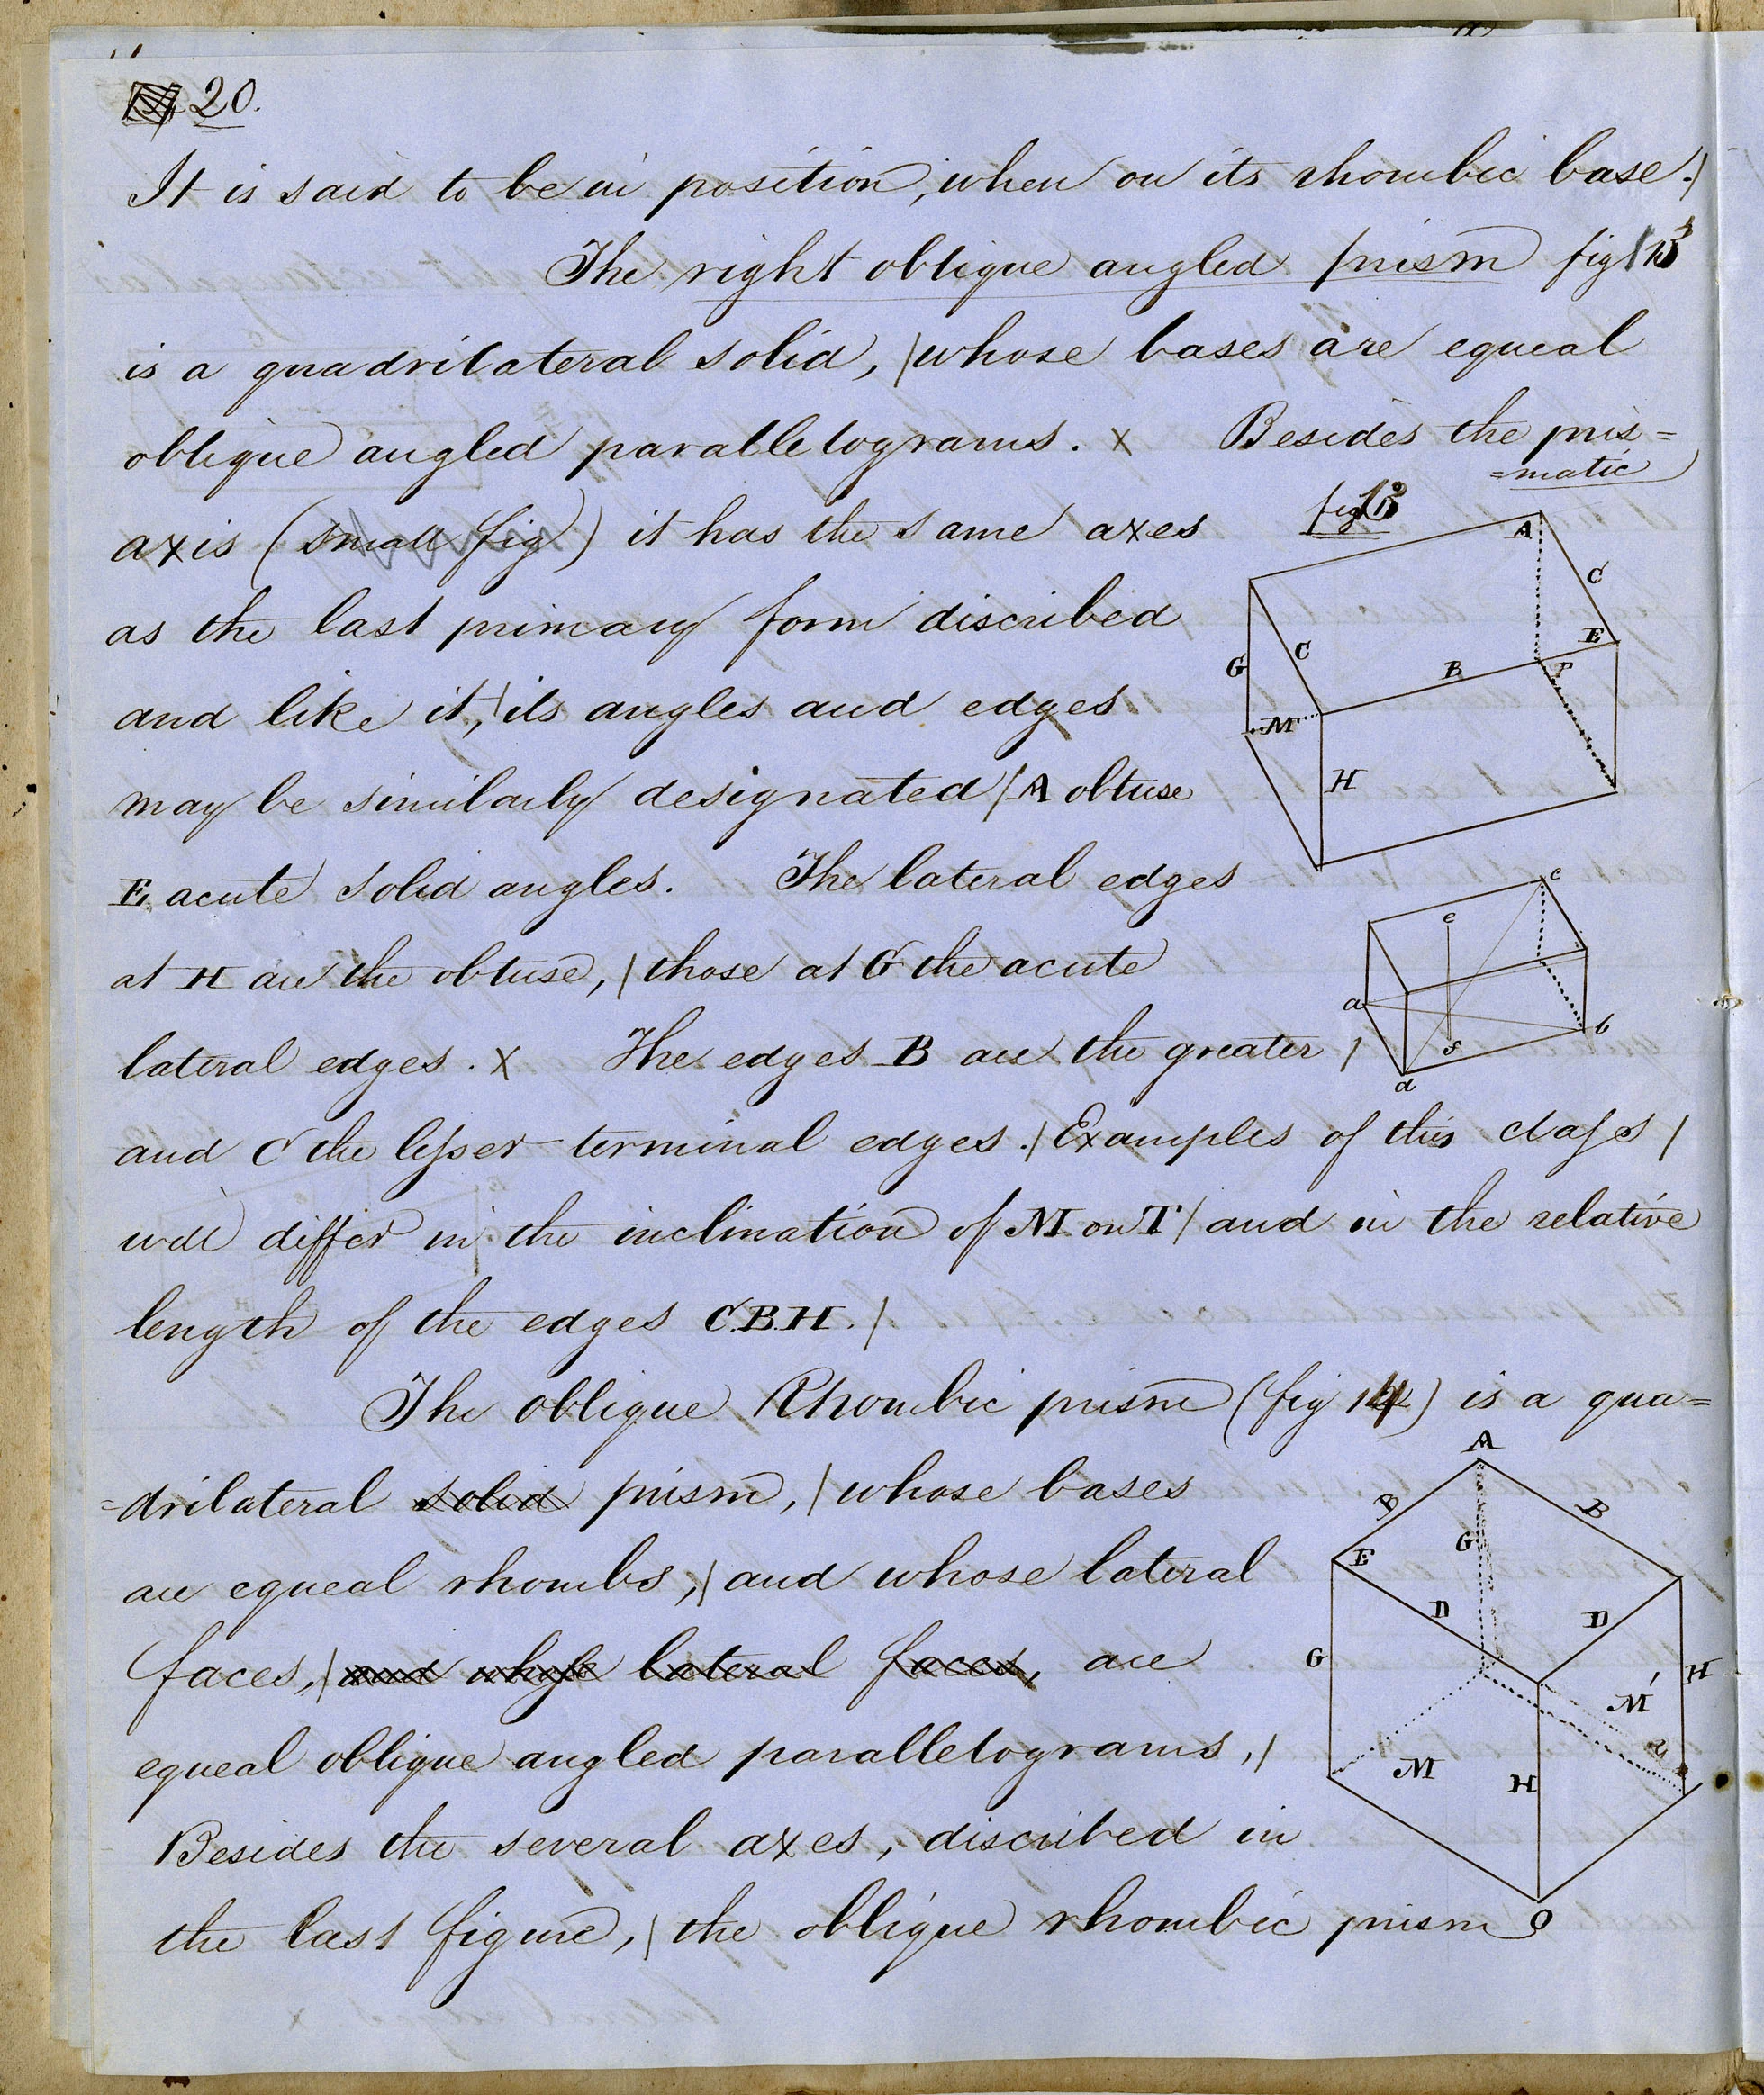 20.
It is said to be in position, when on its rhombic base. /
The right oblique angled prism fig / 13
is a quadrilateral solid, / whose bases are equeal
oblique angled parallelograms. x Besides the pris=
=matic
axis (small fig) it has the same axes
fig 13
as the last primary form discribed
and like it, / its angles and edges
may be similarly designated / A obtuse
E acute solid angles. The lateral edges
at H are the obtuse, / those at G the acute
lateral edges. x The edges B are the greater /
and C the lesser terminal edges. / Examples of this class /
will differ in the inclination of M on T / and in the relative
length of the edges C.B.H. /
The oblique Rhombic prism (fig 14) is a qua=
=drilateral solid prism, / whose bases
are equeal rhombs, / and whose lateral
faces, / and whose lateral faces, are
equeal oblique angled parallelograms, /
Besides the several axes, discribed in
the last figure, / the oblique rhombic prism
A
C
E
C
G
B
F
M
H
c
e
a
b
f
d
A
B
B
G
E
D
D
G
H
M'
M
H
a
O